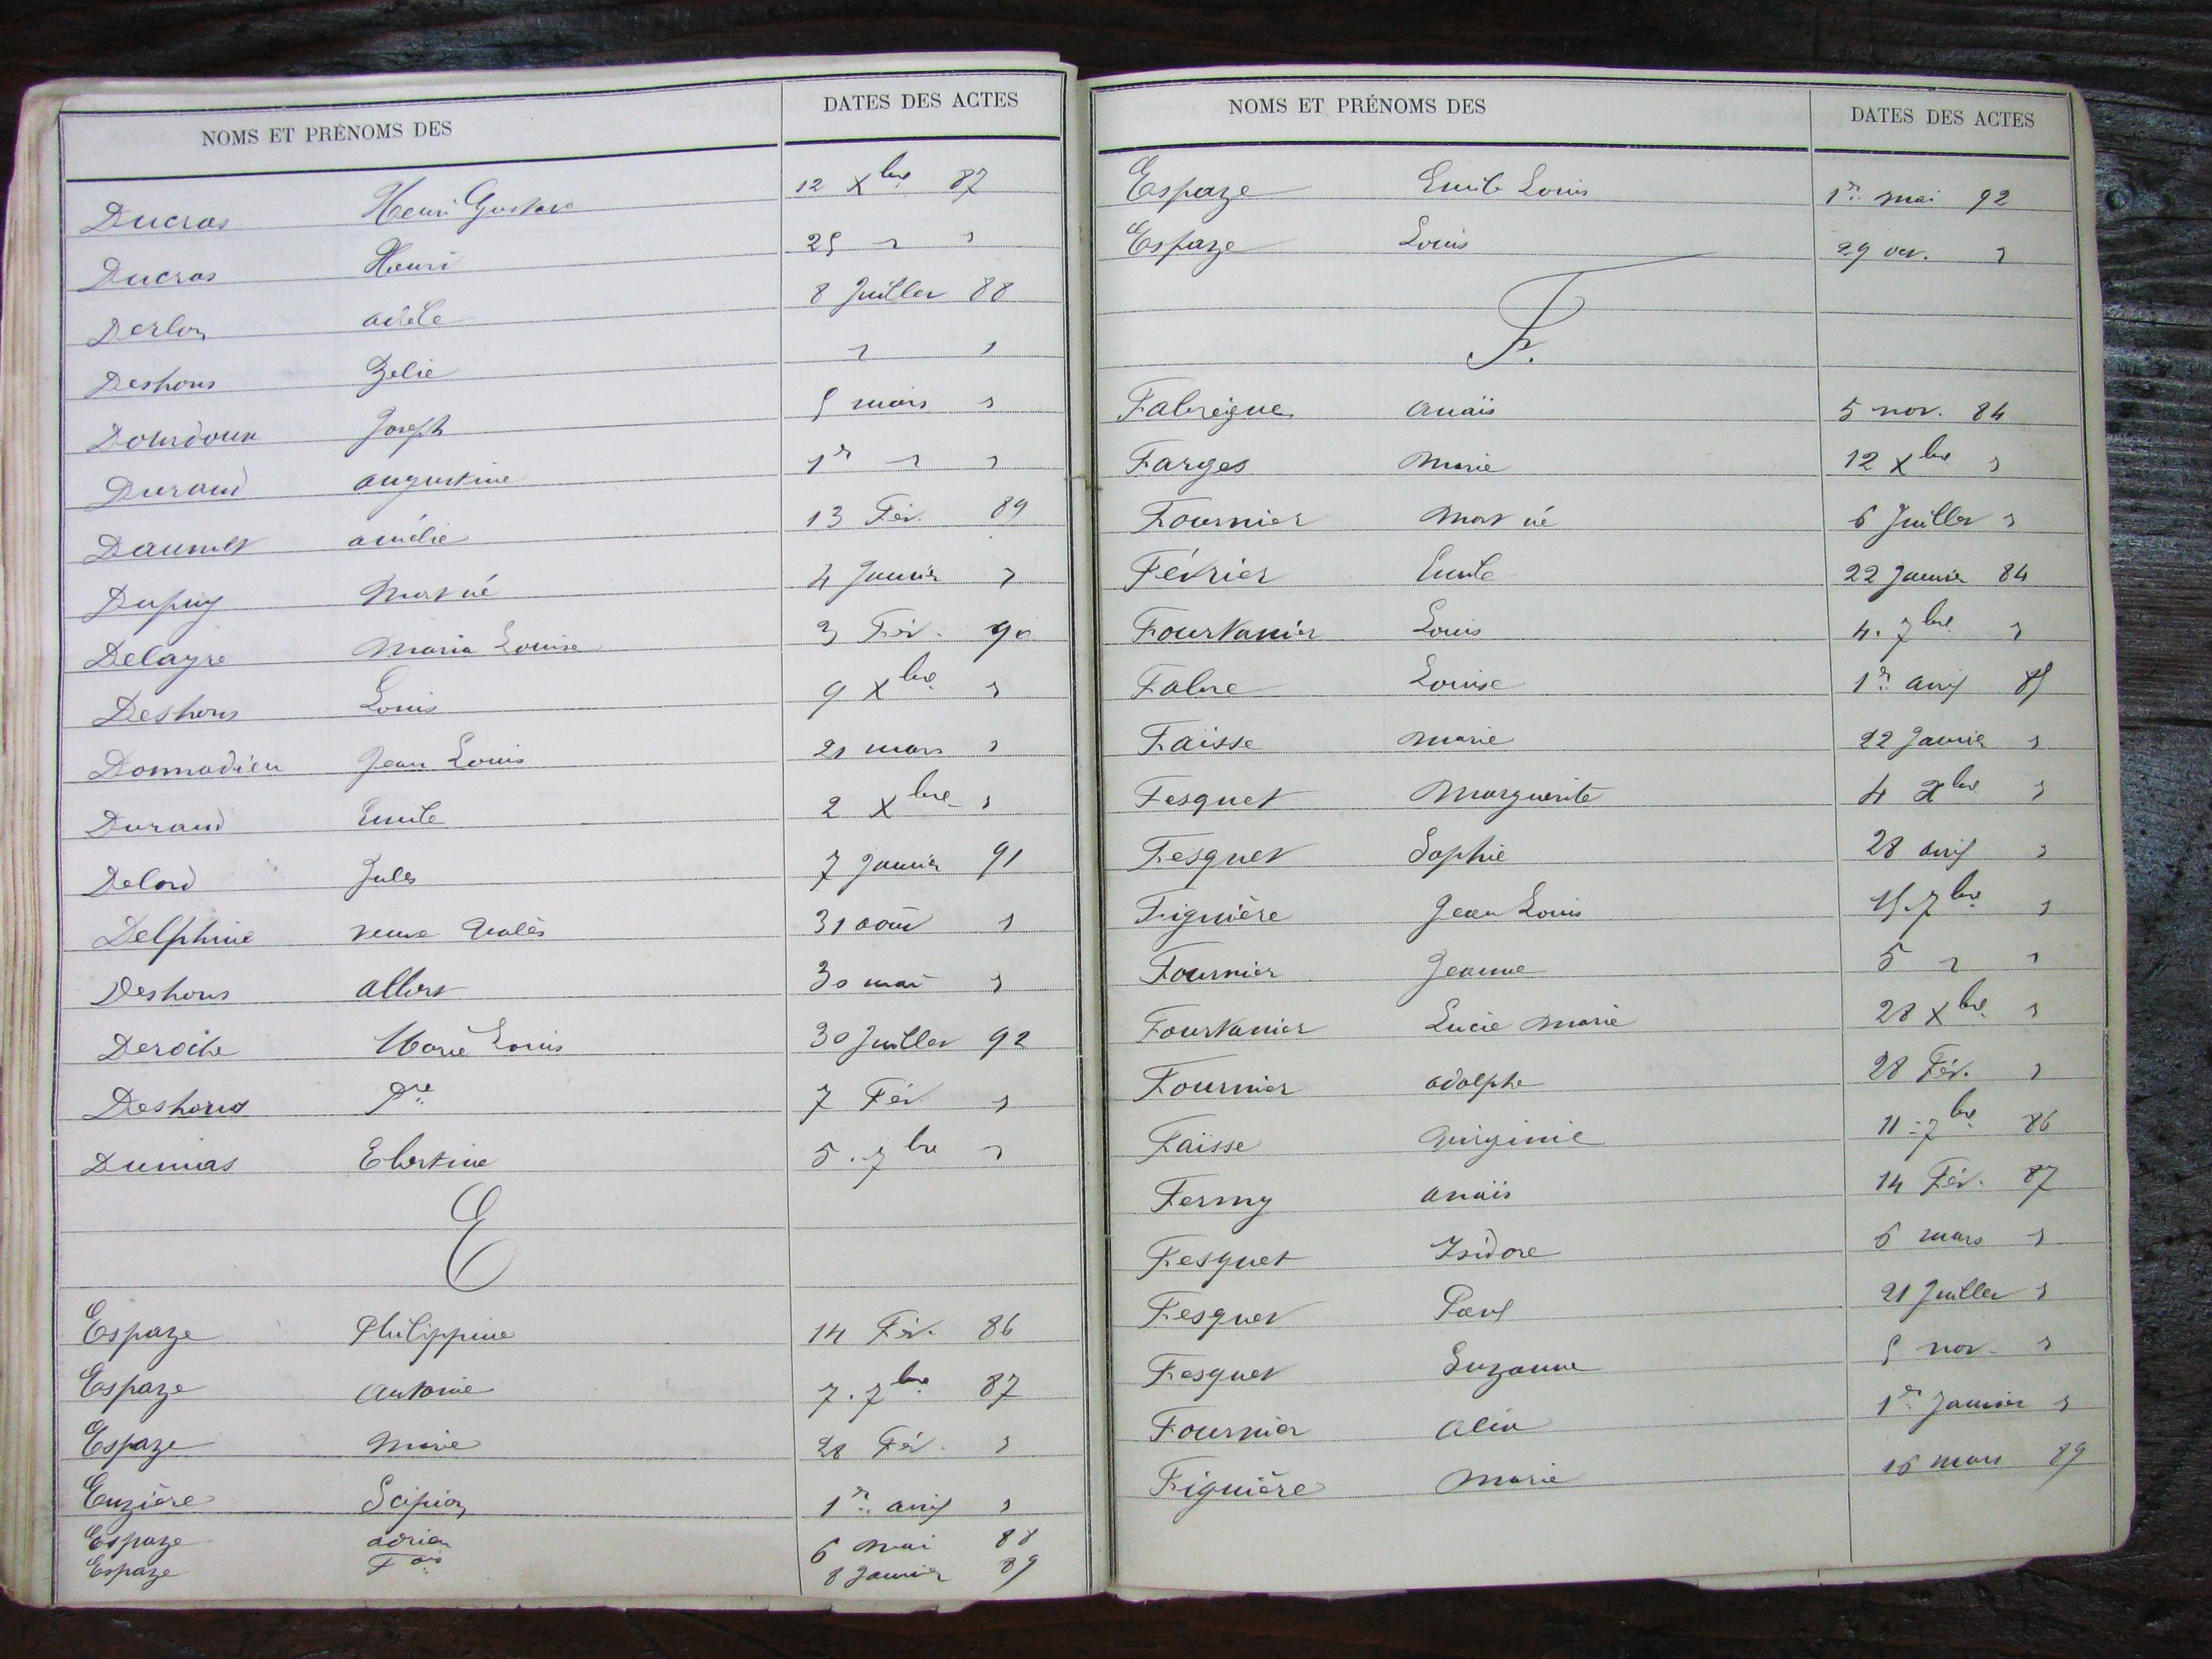 NOMS ET PRÉNOMS DES DATES DES ACTES
Ducros Henri Gustave 12 Xbre 87
Ducros Henri 25 " "
Derlon adèle 8 Juillet 88
Deshons Zelie " "
Dourdoux Joseph 5 mars "
Durand augustine 1er " "
Daumet amélie 13 Fév. 89
Dupuy Mort né 4 Janvier "
Delayre Maria Louise 3 Fév. 90
Deshons Louis 9 Xbre "
Donnadieu Jean Louis 21 mars "
Durand Emile 2 Xbre "
Delord Jules 7 Janvier 91
Delphine veuve Valès 31 août "
Deshons albert 30 mai "
Deroche Marie Louis 30 Juillet 92
Deshons Pre 7 Fév "
Dumas Elertine 5. 7bre "
E
Espaze Philippine 14 Fév. 86
Espaze Antoine 7. 7bre 87
Espaze Marie 28 Fév. "
Euzière Scipion 1er avril "
Espaze adrien 6 mai 88
Espaze Fois 8 Janvier 89
NOMS ET PRÉNOMS DES DATES DES ACTES
Espaze Emile Louis 1er mai 92
Espaze Louis 29 oct. "
F.
Fabrègue anaïs 5 nov. 84
Farges Marie 12 Xbre "
Fournier Mort né 6 Juillet "
Février Emile 22 Janvier 84
Fourtanier Louis 4. 7bre "
Fabre Louise 1er avril 85
Faïsse Marie 22 Janvier "
Fesquet Marguerite 4 Xbre "
Fesquet Sophie 28 avril "
Figuière Jean Louis 15. 7bre "
Fournier Jeanne 5 " "
Fourtanier Lucie Marie 28 Xbre "
Fournier adolphe 28 Fév. "
Faïsse Virginie 11 - 7bre 86
Fermy anaïs 14 Fév. 87
Fesquet Isidore 6 mars "
Fesquet Paul 21 Juillet "
Fesquet Suzanne 5 nov. "
Fournier alix 1er Janvier "
Figuière Marie 16 mars 89